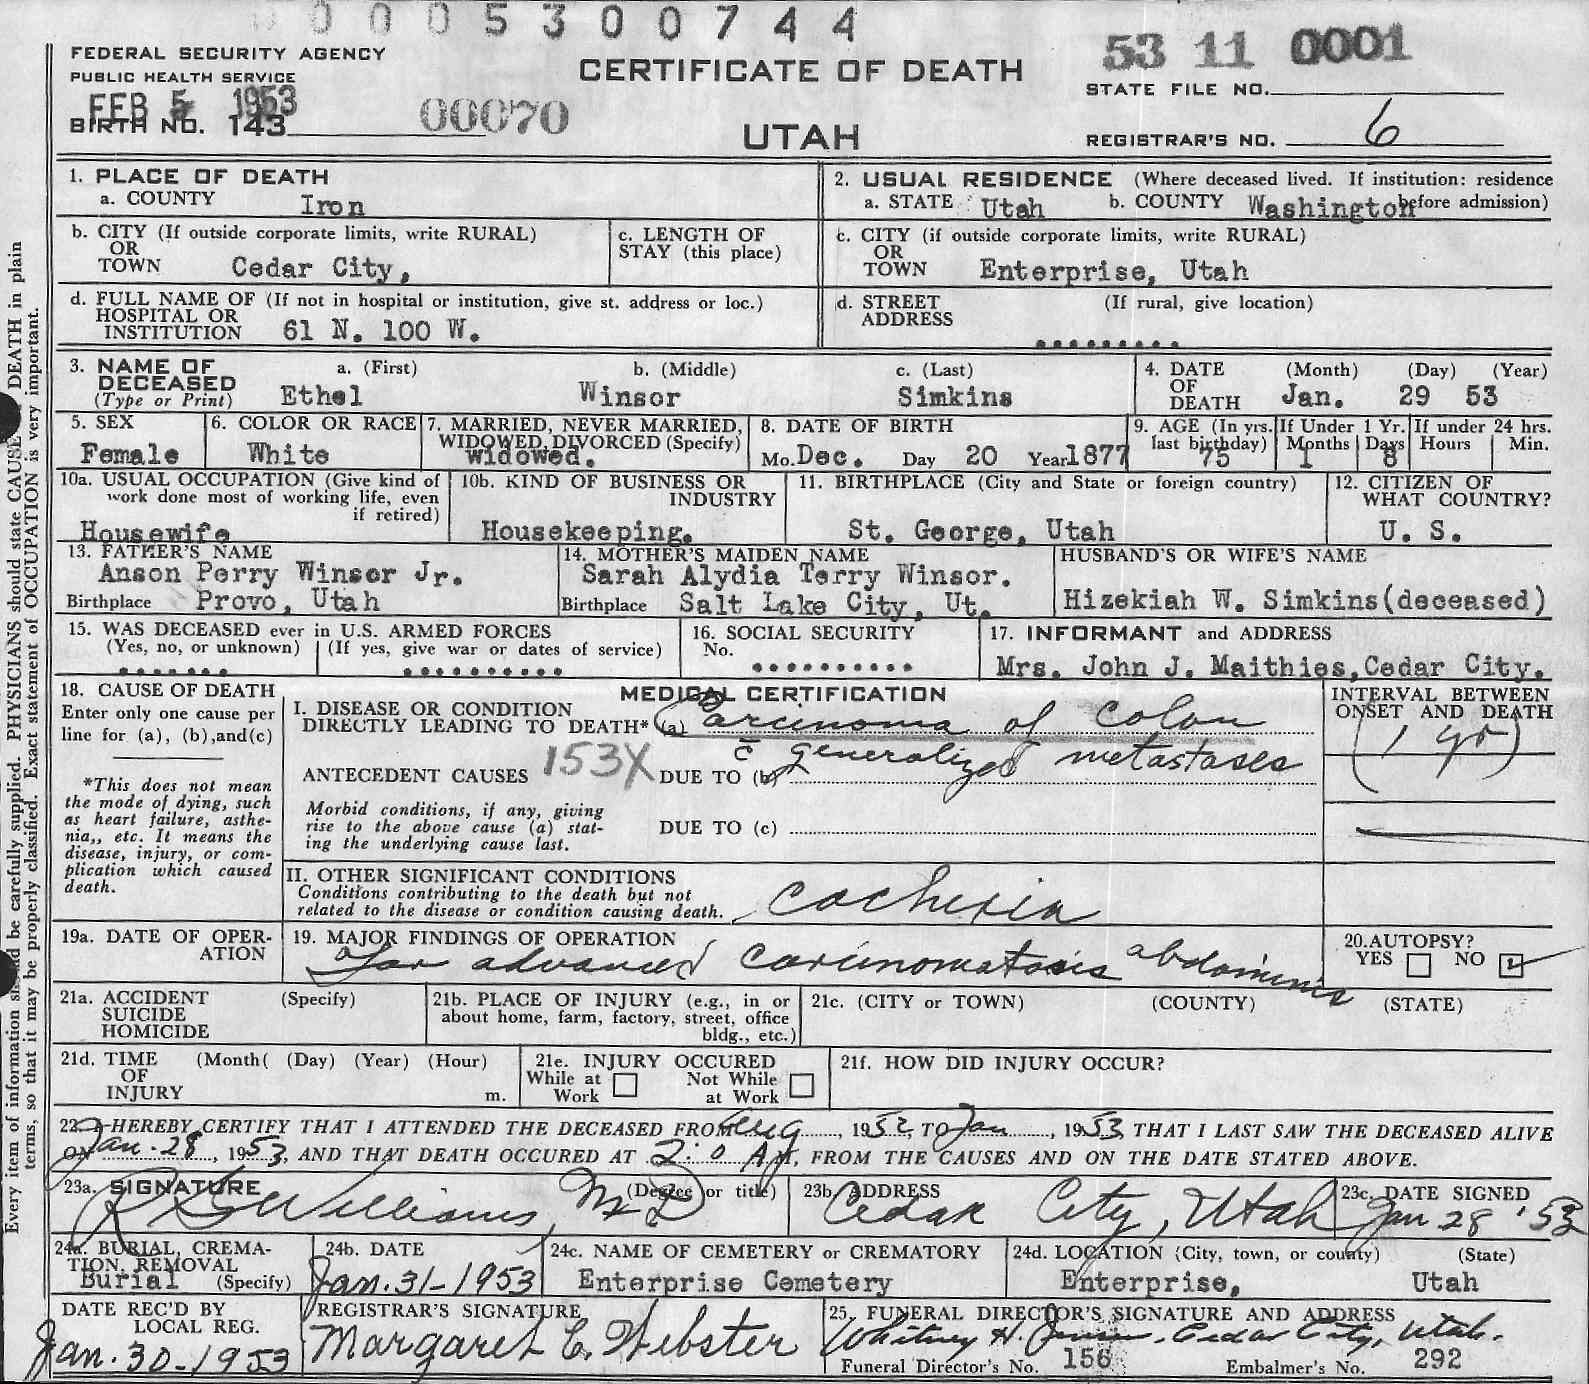 0 0 0 5 3 0 0 7 4 4
53 11 0001
FEDERAL SECURITY AGENCY
PUBLIC HEALTH SERVICE
FEB 5 1953
BIRTH NO. 143
00070
CERTIFICATE OF DEATH
UTAH
STATE FILE NO.
REGISTRAR'S NO. 6
1. PLACE OF DEATH
a. COUNTY Iron
2. USUAL RESIDENCE (Where deceased lived. If institution: residence
a. STATE Utah b. COUNTY Washington before admission)
b. CITY (If outside corporate limits, write RURAL)
OR
TOWN Cedar City,
c. LENGTH OF
STAY (this place)
c. CITY (if outside corporate limits, write RURAL)
OR
TOWN Enterprise, Utah
d. FULL NAME OF (If not in hospital or institution, give st. address or loc.)
HOSPITAL OR
INSTITUTION 61 N. 100 W.
d. STREET (If rural, give location)
ADDRESS .........
3. NAME OF
DECEASED
(Type or Print)
a. (First)
Ethel
b. (Middle)
Winsor
c. (Last)
Simkins
4. DATE (Month) (Day) (Year)
OF
DEATH Jan. 29 53
5. SEX
Female
6. COLOR OR RACE
White
7. MARRIED, NEVER MARRIED,
WIDOWED, DIVORCED (Specify)
Widowed.
8. DATE OF BIRTH
Mo. Dec. Day 20 Year 1877
9. AGE (In yrs.
last birthday)
75
If Under 1 Yr.
Months Days
1 8
If under 24 hrs.
Hours Min.
10a. USUAL OCCUPATION (Give kind of
work done most of working life, even
if retired)
Housewife
10b. KIND OF BUSINESS OR
INDUSTRY
Housekeeping.
11. BIRTHPLACE (City and State or foreign country)
St. George, Utah
12. CITIZEN OF
WHAT COUNTRY?
U. S.
13. FATHER'S NAME
Anson Perry Winsor Jr.
Birthplace Provo, Utah
14. MOTHER'S MAIDEN NAME
Sarah Alydia Terry Winsor.
Birthplace Salt Lake City, Ut.
HUSBAND'S OR WIFE'S NAME
Hizekiah W. Simkins(deceased)
15. WAS DECEASED ever in U.S. ARMED FORCES
(Yes, no, or unknown) (If yes, give war or dates of service)
....... ..........
16. SOCIAL SECURITY
No.
..........
17. INFORMANT and ADDRESS
Mrs. John J. Maithies, Cedar City.
18. CAUSE OF DEATH
Enter only one cause per
line for (a), (b), and (c)
*This does not mean
the mode of dying, such
as heart failure, asthe-
nia,, etc. It means the
disease, injury, or com-
plication which caused
death.
MEDICAL CERTIFICATION
I. DISEASE OR CONDITION
DIRECTLY LEADING TO DEATH* (a) Carcinoma of colon
c̄ generalized metastases
ANTECEDENT CAUSES 153X DUE TO (b)
Morbid conditions, if any, giving
rise to the above cause (a) stat-
ing the underlying cause last.
DUE TO (c)
INTERVAL BETWEEN
ONSET AND DEATH
(1 yr)
II. OTHER SIGNIFICANT CONDITIONS
Conditions contributing to the death but not
related to the disease or condition causing death.
cachexia
19a. DATE OF OPER-
ATION
19. MAJOR FINDINGS OF OPERATION
Far advanced carcinomatosis abdominis
20. AUTOPSY?
YES NO
21a. ACCIDENT (Specify)
SUICIDE
HOMICIDE
21b. PLACE OF INJURY (e.g., in or
about home, farm, factory, street, office
bldg., etc.)
21c. (CITY or TOWN) (COUNTY) (STATE)
21d. TIME (Month( (Day) (Year) (Hour)
OF
INJURY m.
21e. INJURY OCCURED
While at Not While
Work at Work
21f. HOW DID INJURY OCCUR?
22. I HEREBY CERTIFY THAT I ATTENDED THE DECEASED FROM Aug, 1952, TO Jan, 1953, THAT I LAST SAW THE DECEASED ALIVE
ON Jan. 28, 1953, AND THAT DEATH OCCURED AT 2:0 A M, FROM THE CAUSES AND ON THE DATE STATED ABOVE.
23a. SIGNATURE (Degree or title)
Williams, M D
23b. ADDRESS
Cedar City, Utah
23c. DATE SIGNED
Jan 28 '53
24a. BURIAL, CREMA-
TION, REMOVAL
Burial (Specify)
24b. DATE
Jan. 31-1953
24c. NAME OF CEMETERY or CREMATORY
Enterprise Cemetery
24d. LOCATION (City, town, or county) (State)
Enterprise, Utah
DATE REC'D BY
LOCAL REG.
Jan. 30-1953
REGISTRAR'S SIGNATURE
Margaret E. Webster
25. FUNERAL DIRECTOR'S SIGNATURE AND ADDRESS
Whitney H. Cedar City, Utah.
Funeral Director's No. 156 Embalmer's No. 292
Every item of information should be carefully supplied. PHYSICIANS should state CAUSE DEATH in plain
terms, so that it may be properly classified. Exact statement of OCCUPATION is very important.